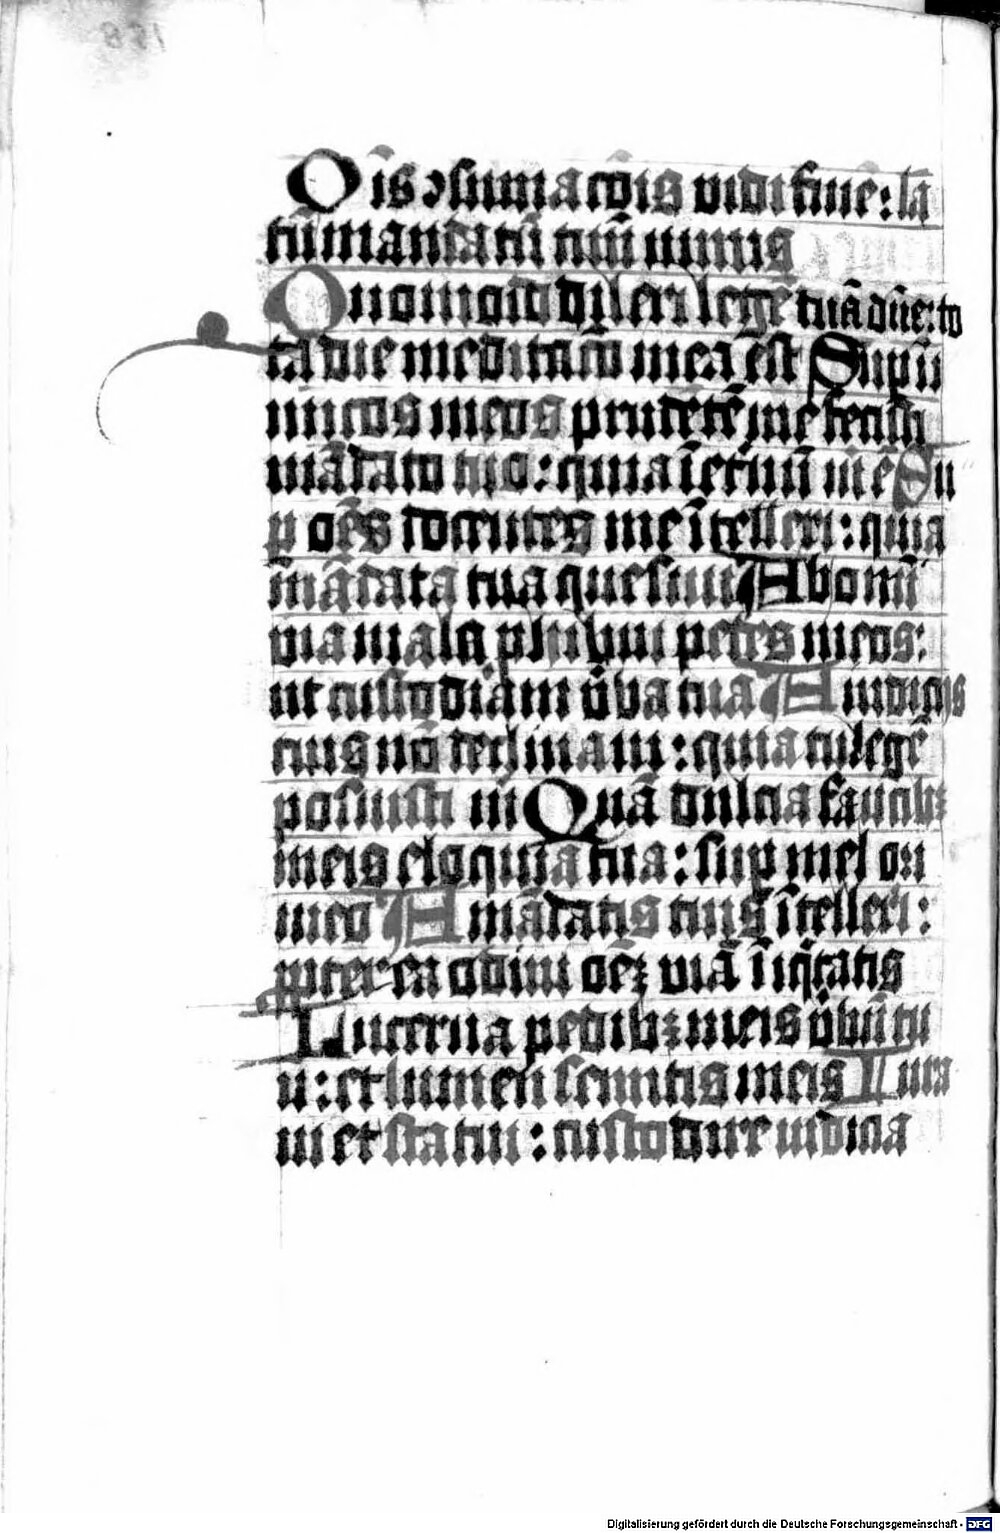 Oīs ↄsumacōis vidi finē: la
tū mandatū tuū nimis
Quomodo dilexi legē tuā dn̄e: to
ta die meditacō mea est Sup ī
imicos meos prudētē me fecisti
mādato tuo: quia ī etnū m̄ ē Su
p oēs docentes me ītellexi: quia
mādata tua quesiui A bo om̄i
via mala phibui pedes meos:
ut custodiam v̄ba tua A iudicijs
tuis nō declinaui: quia tu legē
posuisti m̄ Quā dulcia faucibꝫ
meis eloquia tua: sup mel ori
meo A mādatis tuis ītellexi:
ppterea odiui oēꝫ viā īiq̄tatis
Lucerna pedibꝫ meis v̄bū tu
u: et lumen semitis meis Iura
ui et statui: custodire iudicia
Digitalisierung gefördert durch die Deutsche Forschungsgemeinschaft - DFG